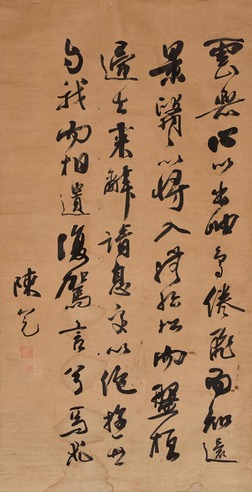 雲無心以出岫鳥倦飛而知還
景翳々以將入撫孤松而盤桓
歸去来辭請息交以絕遊世
與我而相遺復駕言兮焉求
陳